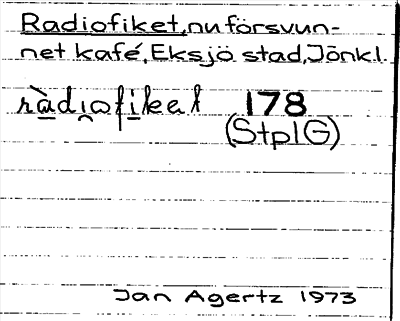 Radiofiket, nu försvun-
net kafé, Eksjö stad, Jönk.l.
ràdiofiket 178
(StplG)
Jan Agertz 1973